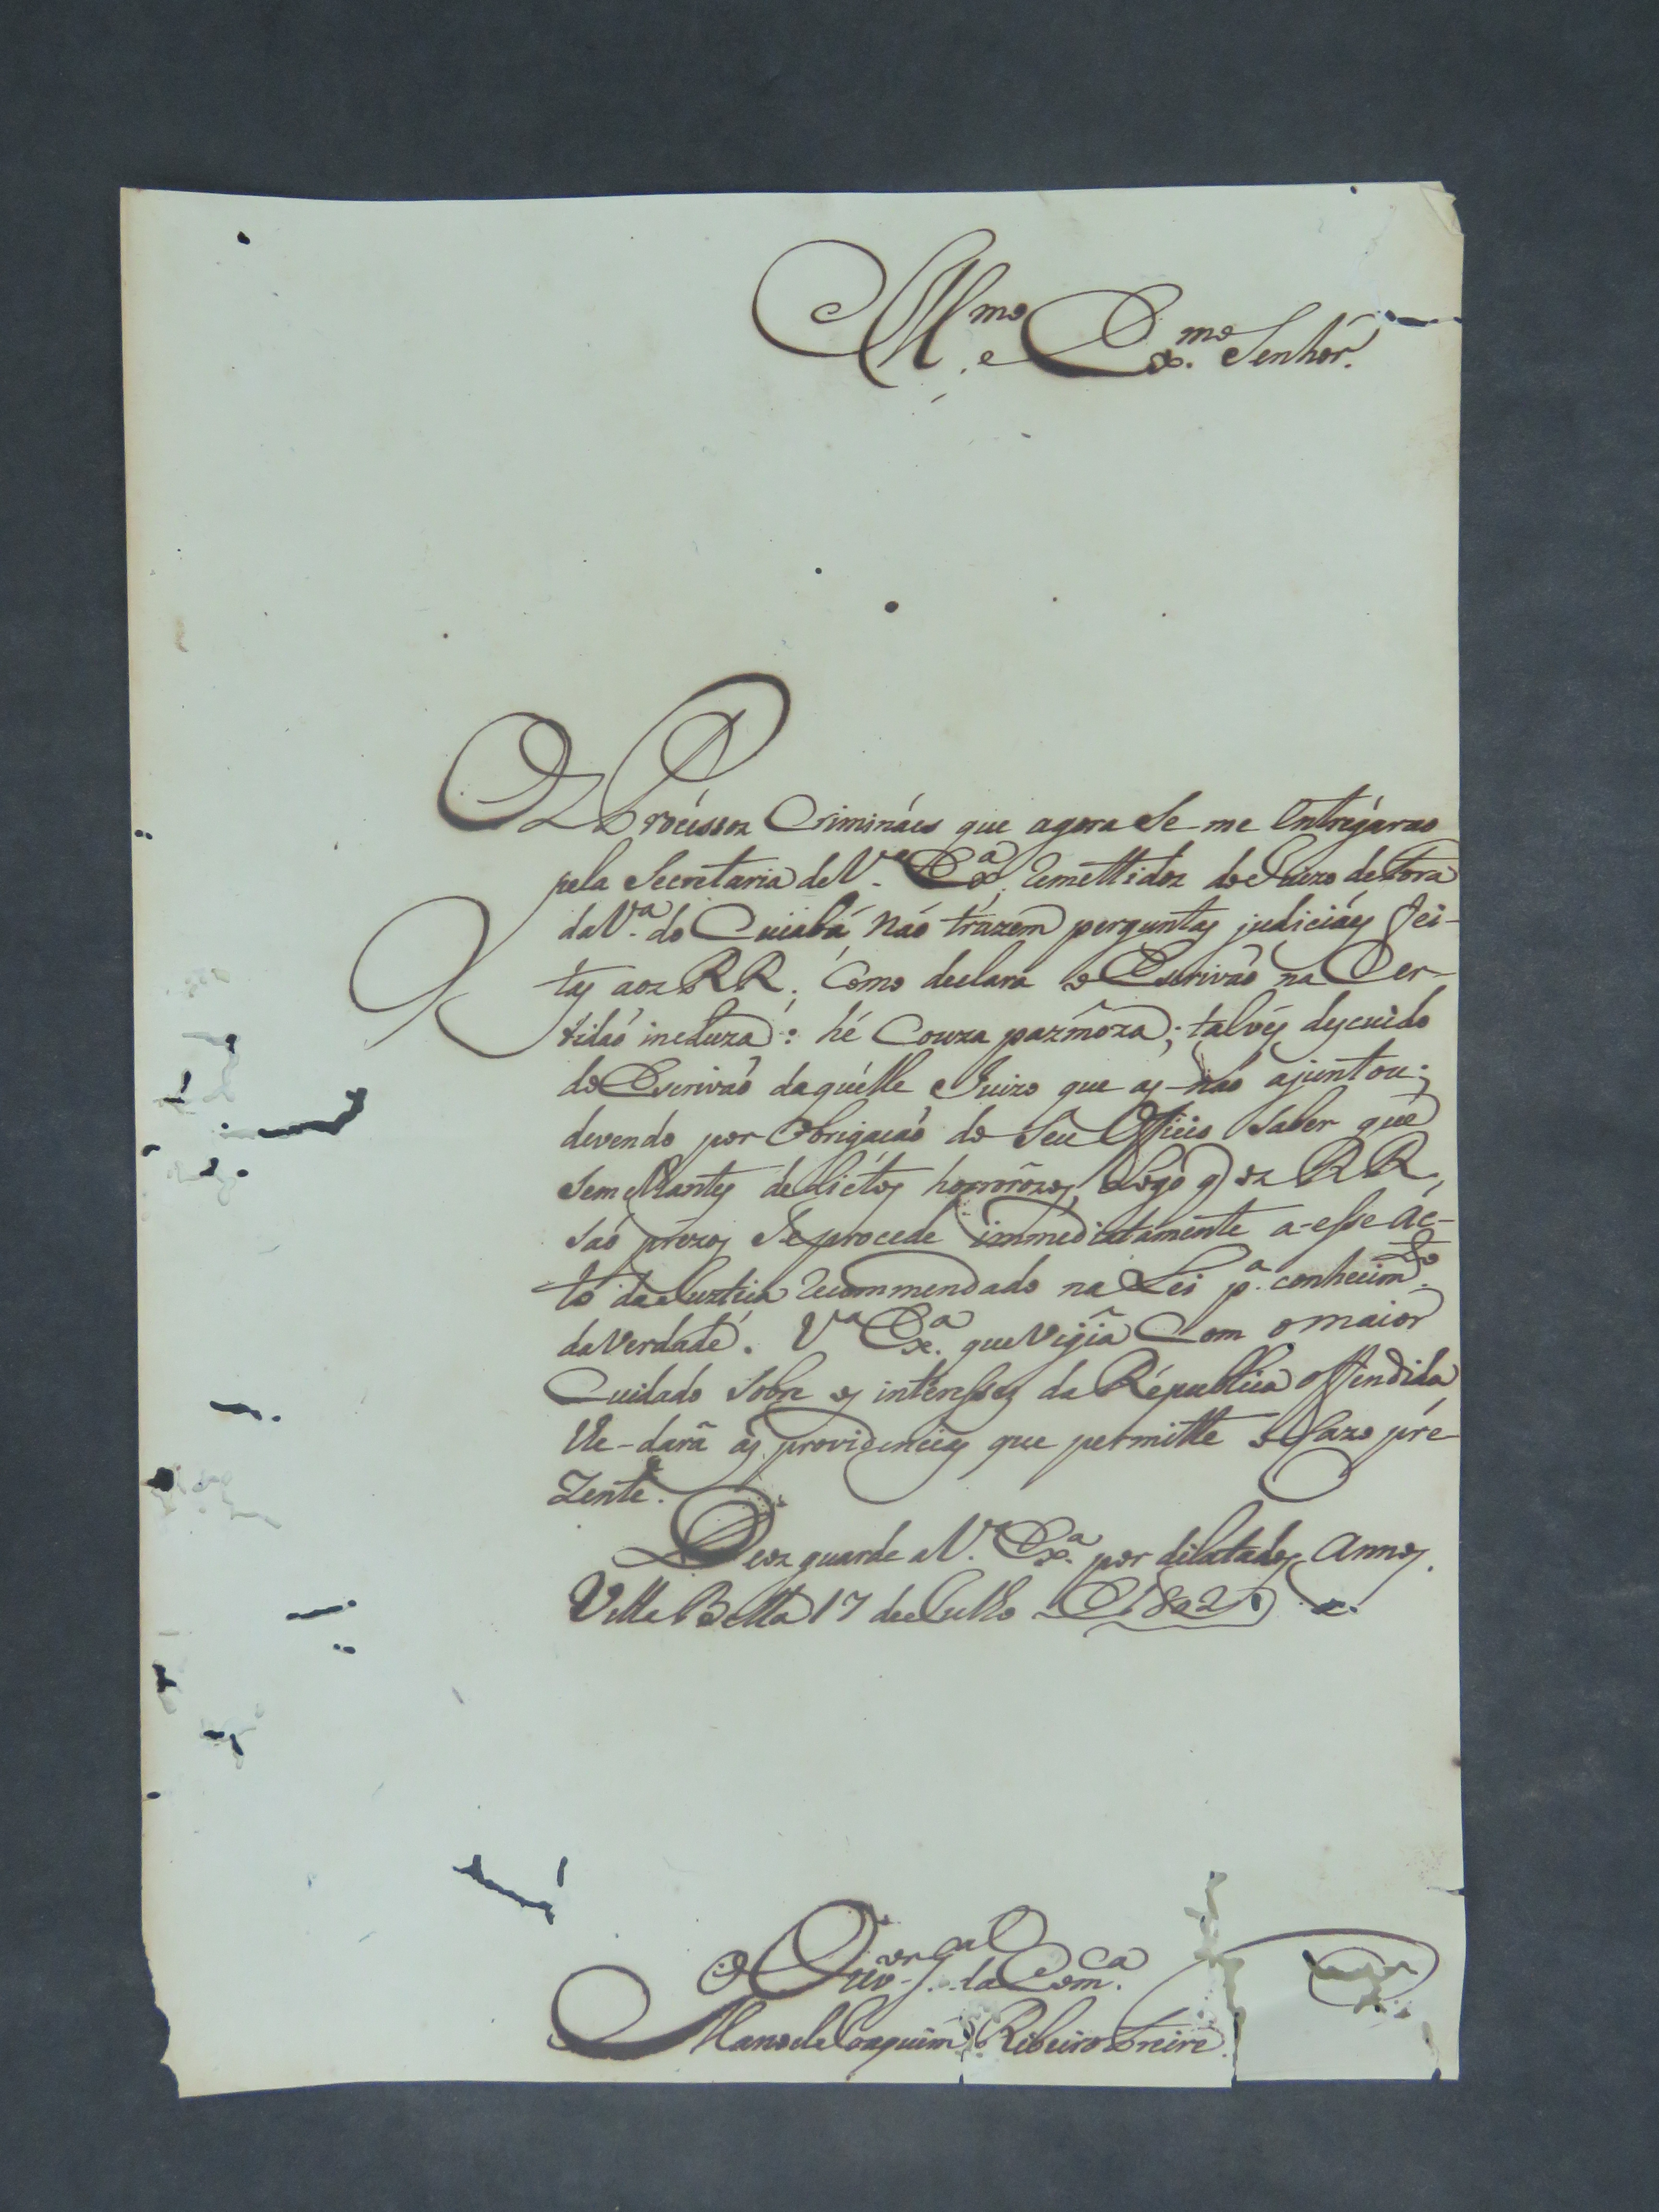 Ill.mo e Ex.mo Senhor.
Os Procéssos Crimináes que agora Se me Entregárão
pela Secretaria de V.ª Ex.ª remettidos do Juizo de Fora
da V.ª do Cuiabá, não trazem perguntas judiciáes fei-
tas aos RR, Como declara o Escrivão na Cer-
tidão incluza: hé Couza pasmoza; talvés descuido
do Escrivão daquélle Juizo que as não ajuntou;
devendo por Obrigação do Seu Officio Saber que
Semelhantes delictos horrorozos, Logo q os RR,
são prezos Se procede immediatamente a esse Ac-
to de Justiça recommendado na Lei p.ª conhecim.to
da Verdade. V.ª Ex.ª que Vigia Com o maior
Cuidado Sobre os interesses da Républica offendida
Me dará as providencias que permitte o Cazo pré-
Zente.
Deos guarde a V.ª Ex.ª por dilatados Annos.
Villa Bella 17 de Julho 1802
O Ouv.or g.al da Com.ca
Manoel Joaquim Ribeiro Freire.